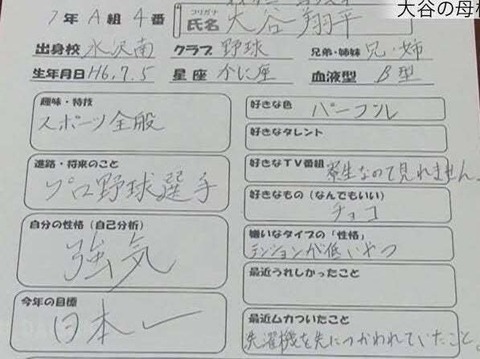 大谷の母校
1年A組4番
フリガナ
氏名 大谷翔平
出身校 水沢南 クラブ 野球 兄弟・姉妹 兄・姉
生年月日 H6.7.5 星座 かに座 血液型 B型
趣味・特技
スポーツ全般
進路・将来のこと
プロ野球選手
自分の性格(自己分析)
強気
今年の目標
日本一
好きな色
パープル
好きなタレント
好きなTV番組
寮生なので見れません。
好きなもの(なんでもいい)
チョコ
嫌いなタイプの「性格」
テンションが低いやつ
最近うれしかったこと
最近ムカついたこと
洗濯機を先につかわれていたこと。